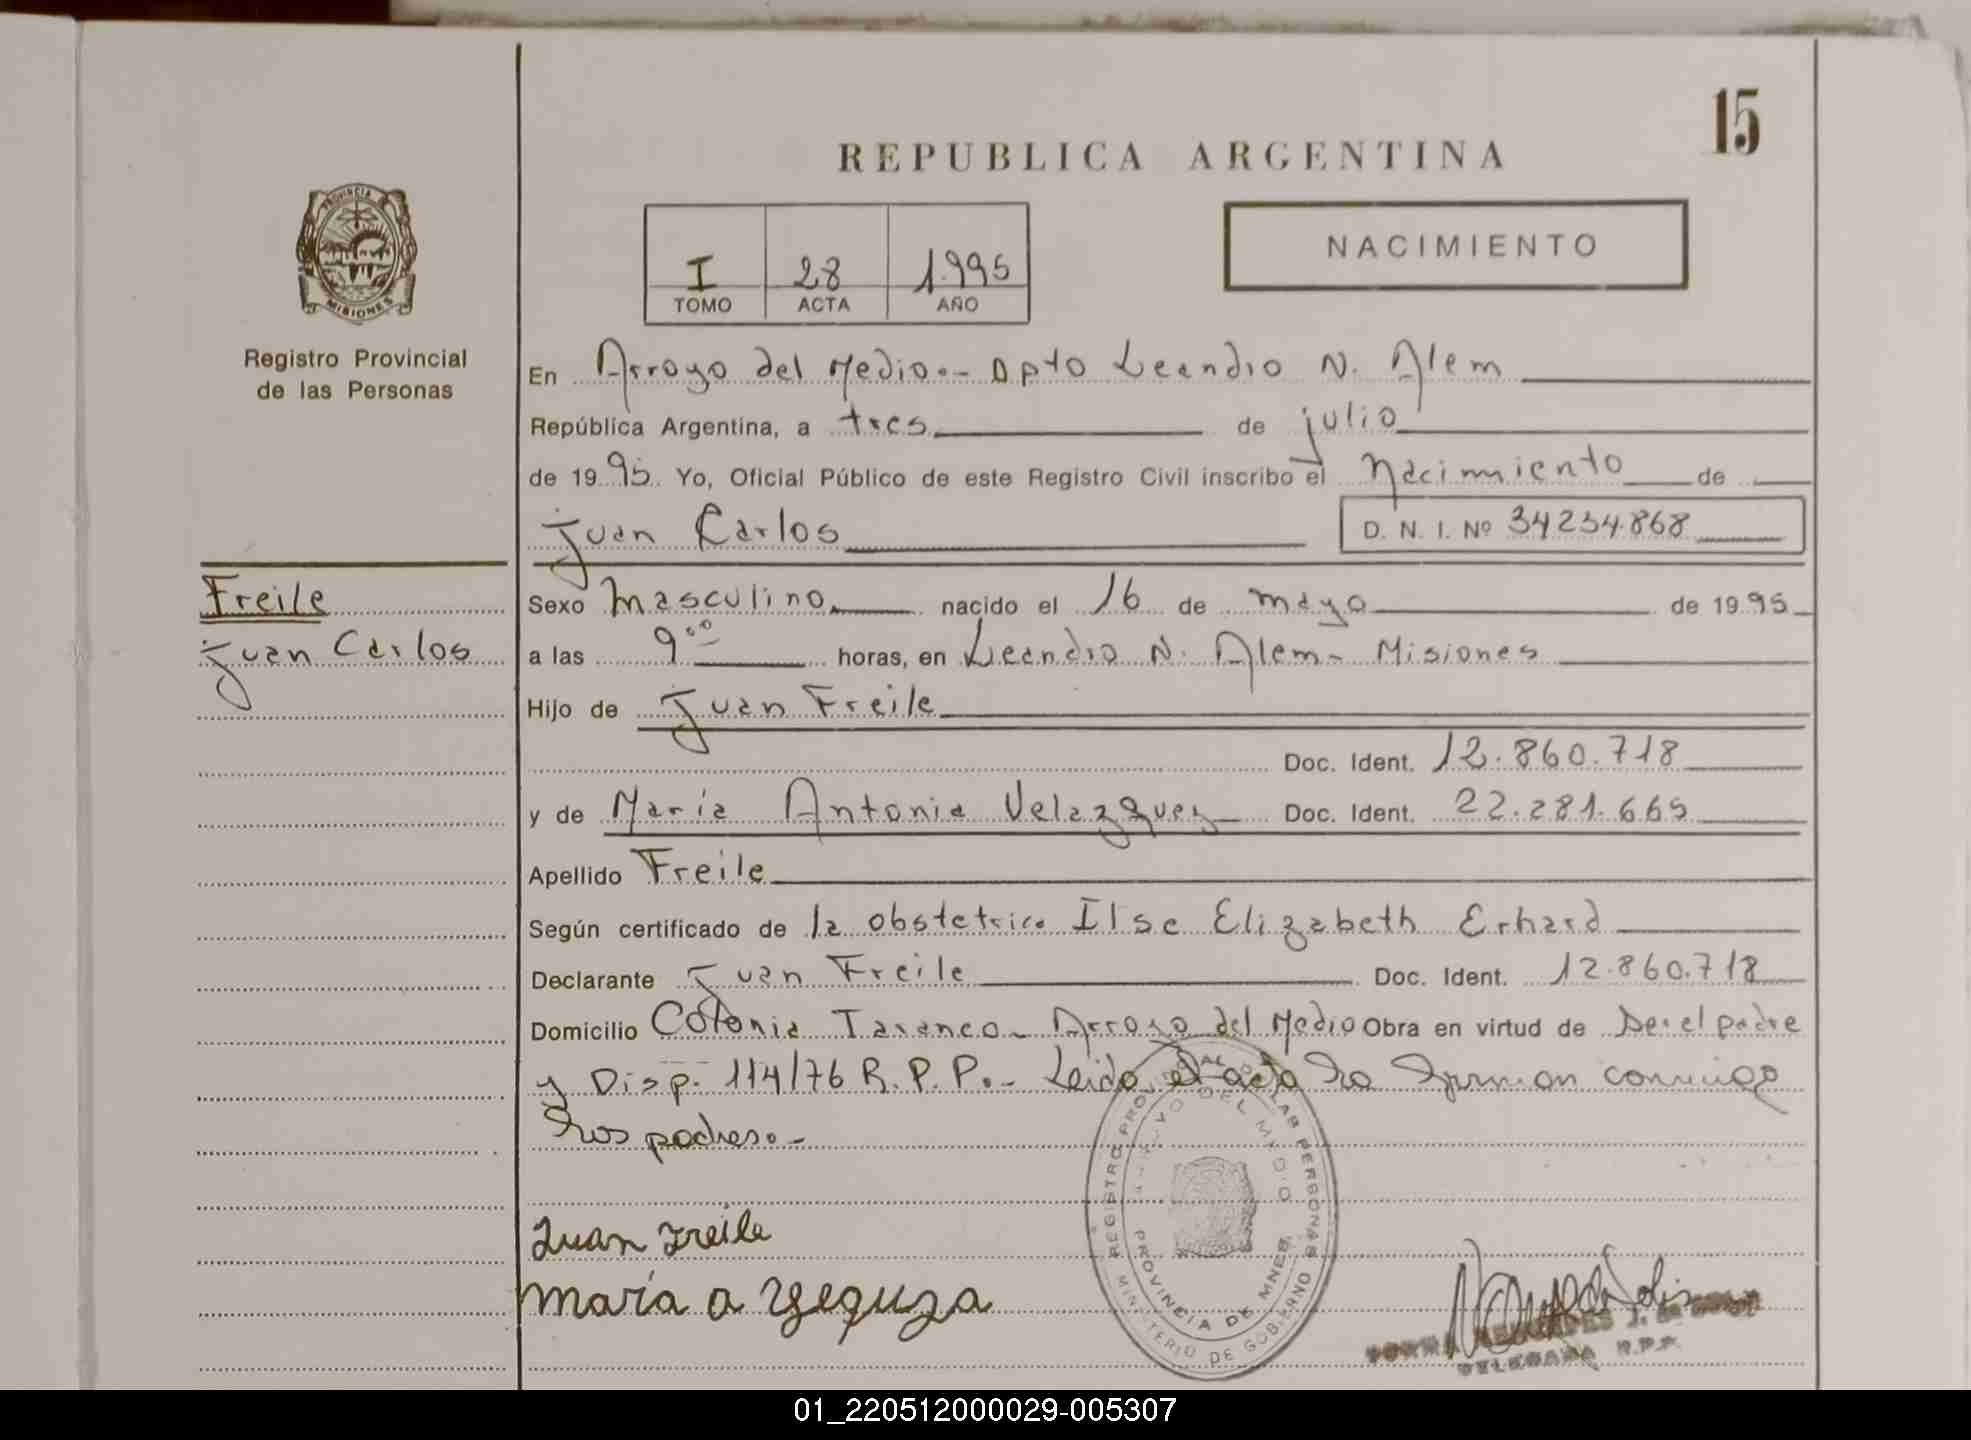 15
REPUBLICA ARGENTINA
PROVINCIA DE
MISIONES
Registro Provincial
de las Personas
I 28 1.995
TOMO ACTA AÑO
NACIMIENTO
En Arroyo del Medio.- Dpto Leandro N. Alem
República Argentina, a tres de julio
de 19 95 Yo, Oficial Público de este Registro Civil inscribo el Nacimiento de
Juan Carlos D. N. I. Nº 34234.868
Freile
Juan Carlos
Sexo Masculino nacido el 16 de mayo de 19 95
a las 9 00 horas, en Leandro N. Alem - Misiones
Hijo de Juan Freile
Doc. Ident. 12.860.718
y de María Antonia Velazquez Doc. Ident. 22.281.665
Apellido Freile
Según certificado de la obstetrica Ilse Elizabeth Erhard
Declarante Juan Freile Doc. Ident. 12.860.718
Domicilio Colonia Taranco - Arroyo del Medio Obra en virtud de Ser el padre
y Disp. 114/76 R.P.P.- Leida el acta la firman conmigo
los padres.-
Juan Freile
maria a
REGISTRO PROVINCIAL DE LAS PERSONAS
ARROYO DEL MEDIO
PROVINCIA DE MNES.
MINISTERIO DE GOBIERNO
DELEGADA R.P.P.
01_220512000029-005307